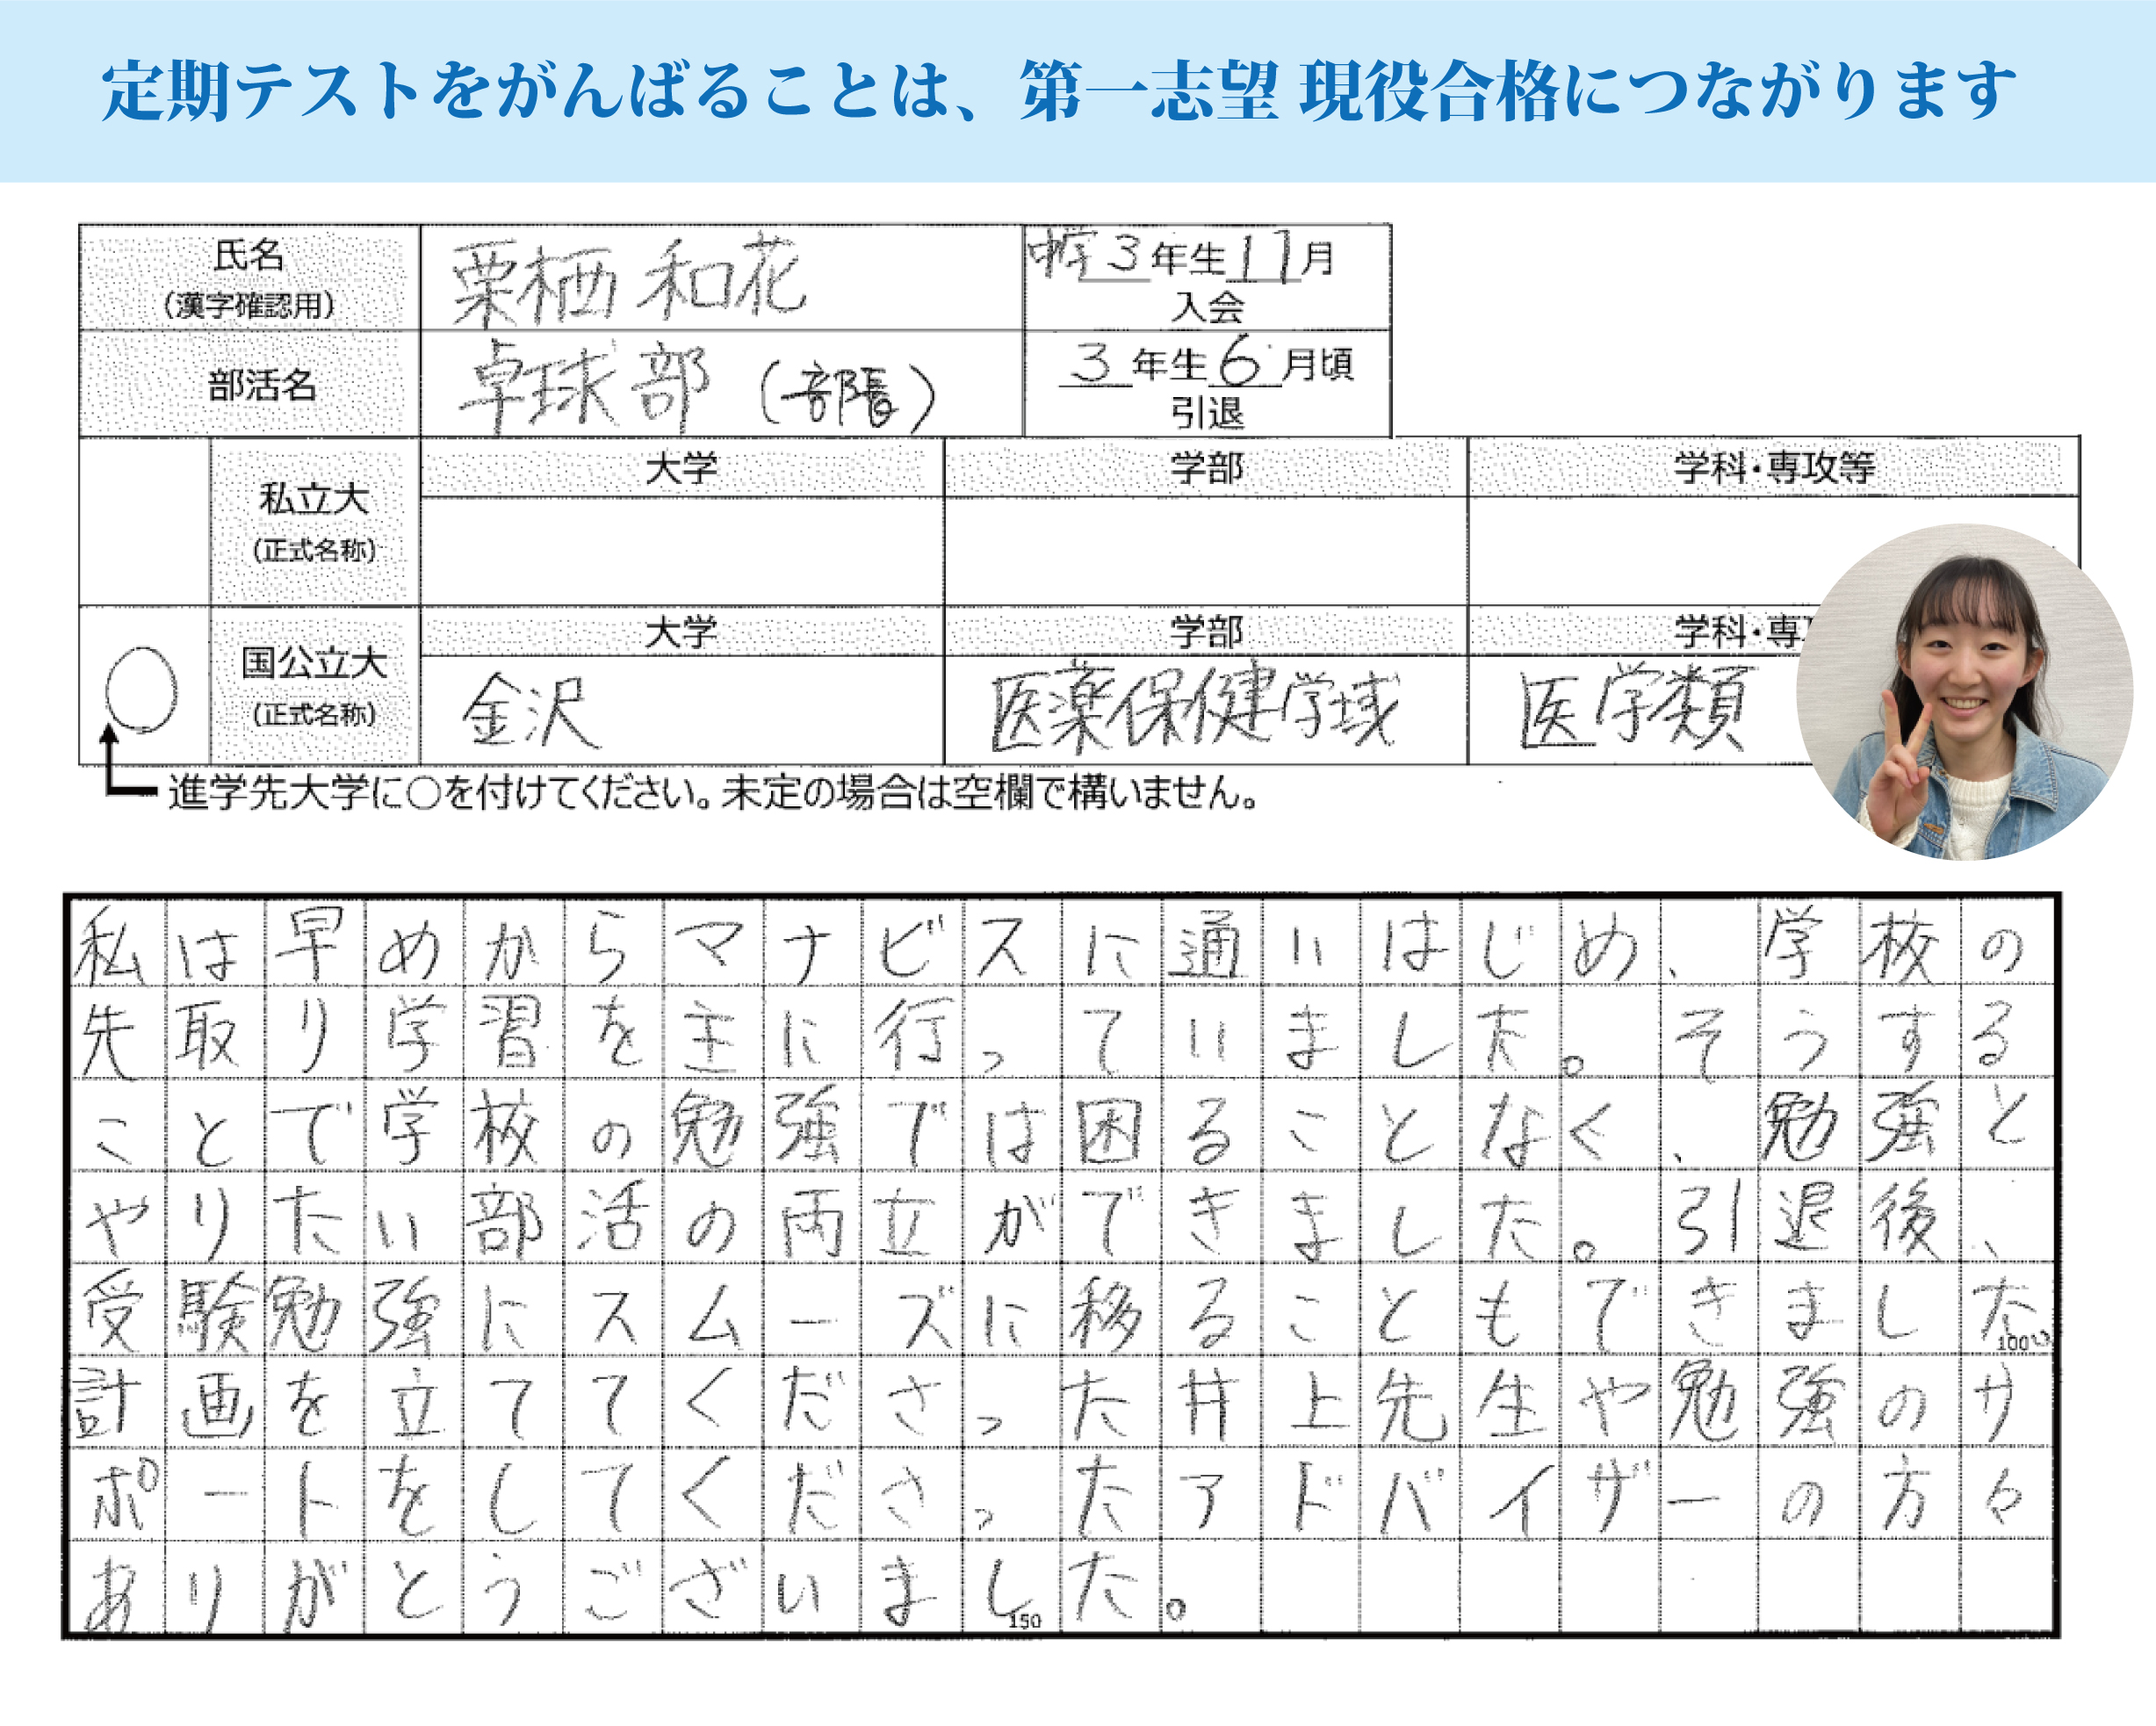 定期テストをがんばることは、第一志望 現役合格につながります
氏名
(漢字確認用)
栗栖 和花
中学3年生11月
入会
部活名
卓球部 (部長)
3年生6月頃
引退
私立大
(正式名称)
大学
学部
学科・専攻等
国公立大
(正式名称)
大学
学部
学科・専
○
金沢
医薬保健学域
医学類
進学先大学に○を付けてください。未定の場合は空欄で構いません。
私は早めからマナビスに通いはじめ、学校の
先取り学習を主に行っていました。そうする
ことで学校の勉強では困ることなく、勉強と
やりたい部活の両立ができました。引退後、
受験勉強にスムーズに移ることもできました。
100
計画を立ててくださった井上先生や勉強のサ
ポートをしてくださったアドバイザーの方々
ありがとうございました。
150